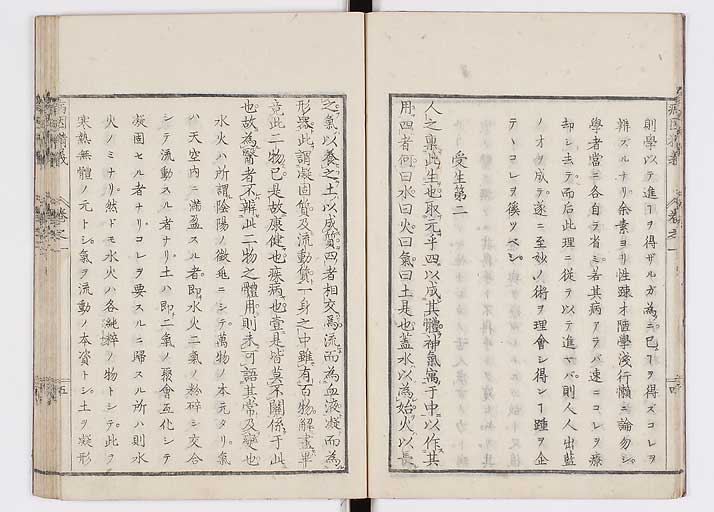 則學以テ進ヿヲ得ザルガ為ニ已ヿヲ得ズコレヲ
辨ズルナリ余素ヨリ性踈才陋學淺行懶ニ論勿シ
學者當ニ各自ラ省ミ若其病アラバ速ニコレヲ療
却シ去テ而后此理ニ從ヲ以テ進マバ則人人出藍
ノオヲ成テ遂ニ至妙ノ術ヲ理會シ得ンヿ踵ヲ企
テヽコレヲ徯ツベシ
受生第二
人之稟此生也取元乎四以成其體神氣寓于中以作其
用四者何曰水曰火曰氣曰土是也蓋水以為始火以長
之氣以養之土以成質四者相交為流而為血液凝而為
形器此謂凝固質及流動質一身之中雖有百物解盡畢
竟此二物已是故康健也疾病也壹是皆莫不關係于此
也故為醫者不辨此二物之體用則未可語其常及變也
水火ハ所謂陰陽ノ徴兆ニシテ萬物ノ本元タリ氣
ハ天空內ニ滿盈スル者即水火二氣ノ粉碎シ交合
シテ流動スル者ナリ土ハ即二氣ノ聚會互化シテ
凝固セル者ナリコレヲ要スルニ歸スル所ハ則水
火ノミナリ然ドモ水火ハ各純粹ノ物トシテ此ヲ
寒熱無體ノ元トシ氣ヲ流動ノ本資トシ土ヲ凝形
病因精義
卷之一
五